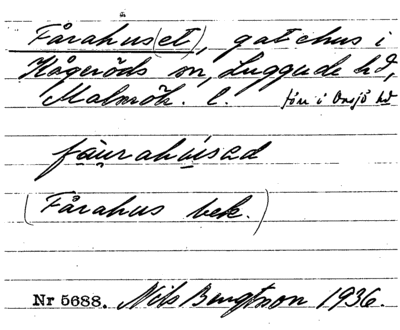 Fårahus(et), gatehus i
Kågeröds sn, Luggude hd,
Malmöh. l. förr i Onsjö hd
fåurahúsəd
(Fårahus bek.)
Nr 5688. Nils Bengtsson 1936.